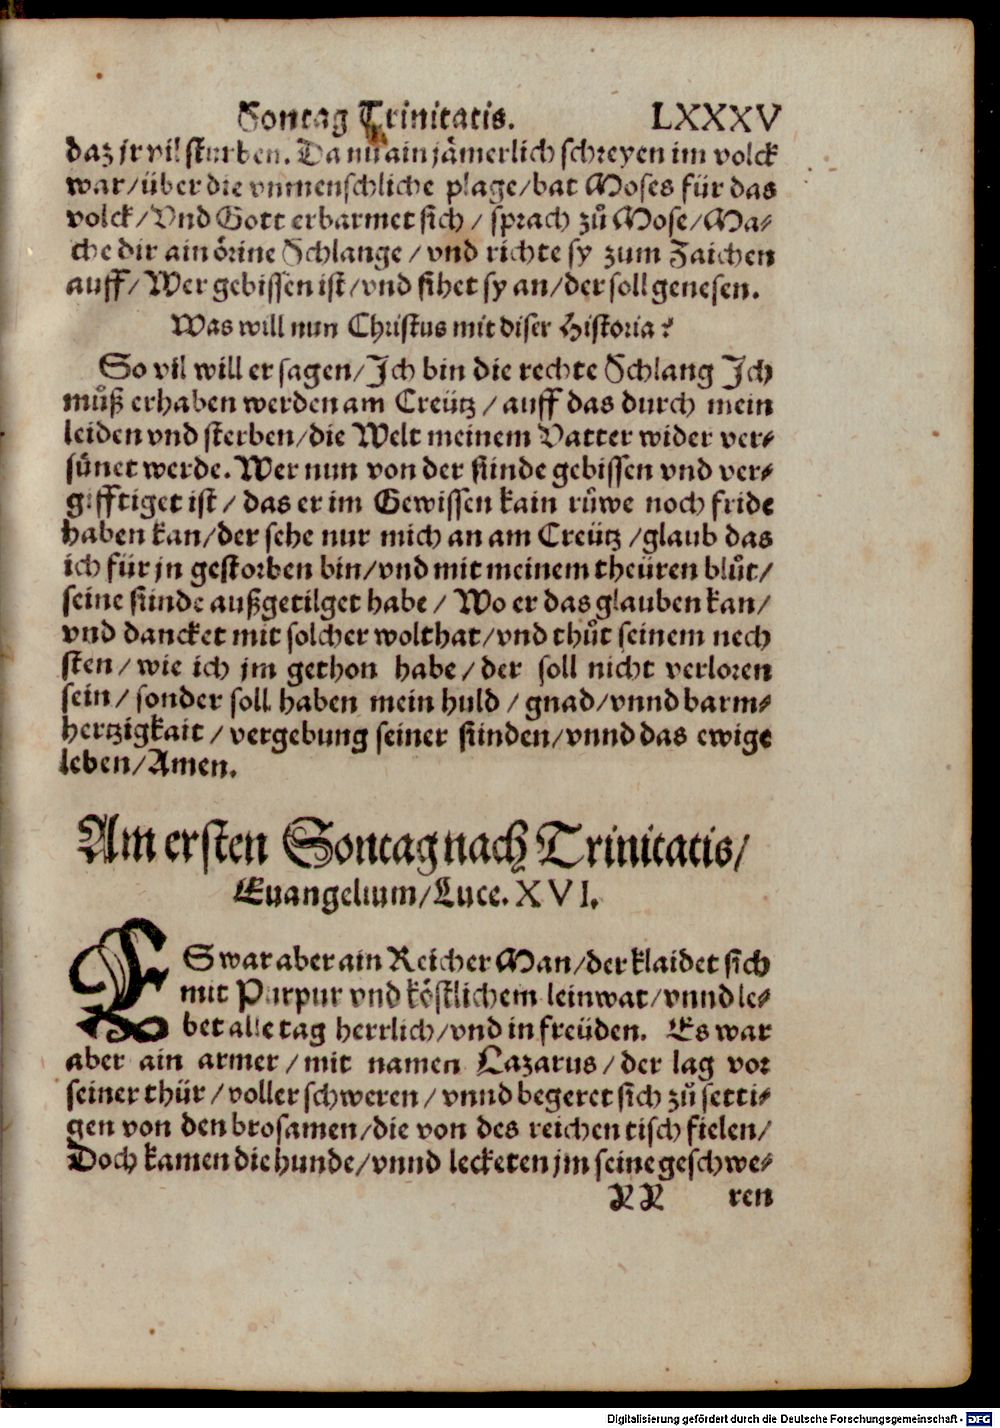 Sontag Trinitatis. LXXXV
daz jr vil sturben. Da nu ain jämerlich schreyen im volck
war/über die vnmenschliche plage/bat Moses für das
volck/Vnd Gott erbarmet sich/ sprach zů Mose/Ma-
che dir ain örine Schlange/vnd richte sy zum Zaichen
auff/Wer gebissen ist/vnd sihet sy an/der soll genesen.
Was will nun Christus mit diser Historia?
So vil will er sagen/Ich bin die rechte Schlang Ich
můß erhaben werden am Creütz/auff das durch mein
leiden vnd sterben/die Welt meinem Vatter wider ver-
sünet werde. Wer nun von der sünde gebissen vnd ver-
gifftiget ist/ das er im Gewissen kain růwe noch fride
haben kan/der sehe nur mich an am Creütz/glaub das
ich für jn gestorben bin/vnd mit meinem theüren blůt/
seine sünde außgetilget habe/Wo er das glauben kan/
vnd dancket mit solcher wolthat/vnd thůt seinem nech
sten/wie ich jm gethon habe/der soll nicht verloren
sein/sonder soll haben mein huld/gnad/vnnd barm-
hertzigkait/vergebung seiner sünden/vnnd das ewige
leben/Amen.
Am ersten Sontag nach Trinitatis/
Euangelium/Luce. XVI.
ES war aber ain Reicher Man/der klaidet sich
mit Purpur vnd köstlichem leinwat/vnnd le-
bet alle tag herrlich/vnd in freüden. Es war
aber ain armer/mit namen Lazarus/der lag vor
seiner thür/voller schweren/vnnd begeret sich zů setti-
gen von den brosamen/die von des reichen tisch fielen/
Doch kamen die hunde/vnnd lecketen jm seine geschwe-
ren
Digitalisierung gefördert durch die Deutsche Forschungsgemeinschaft - DFG